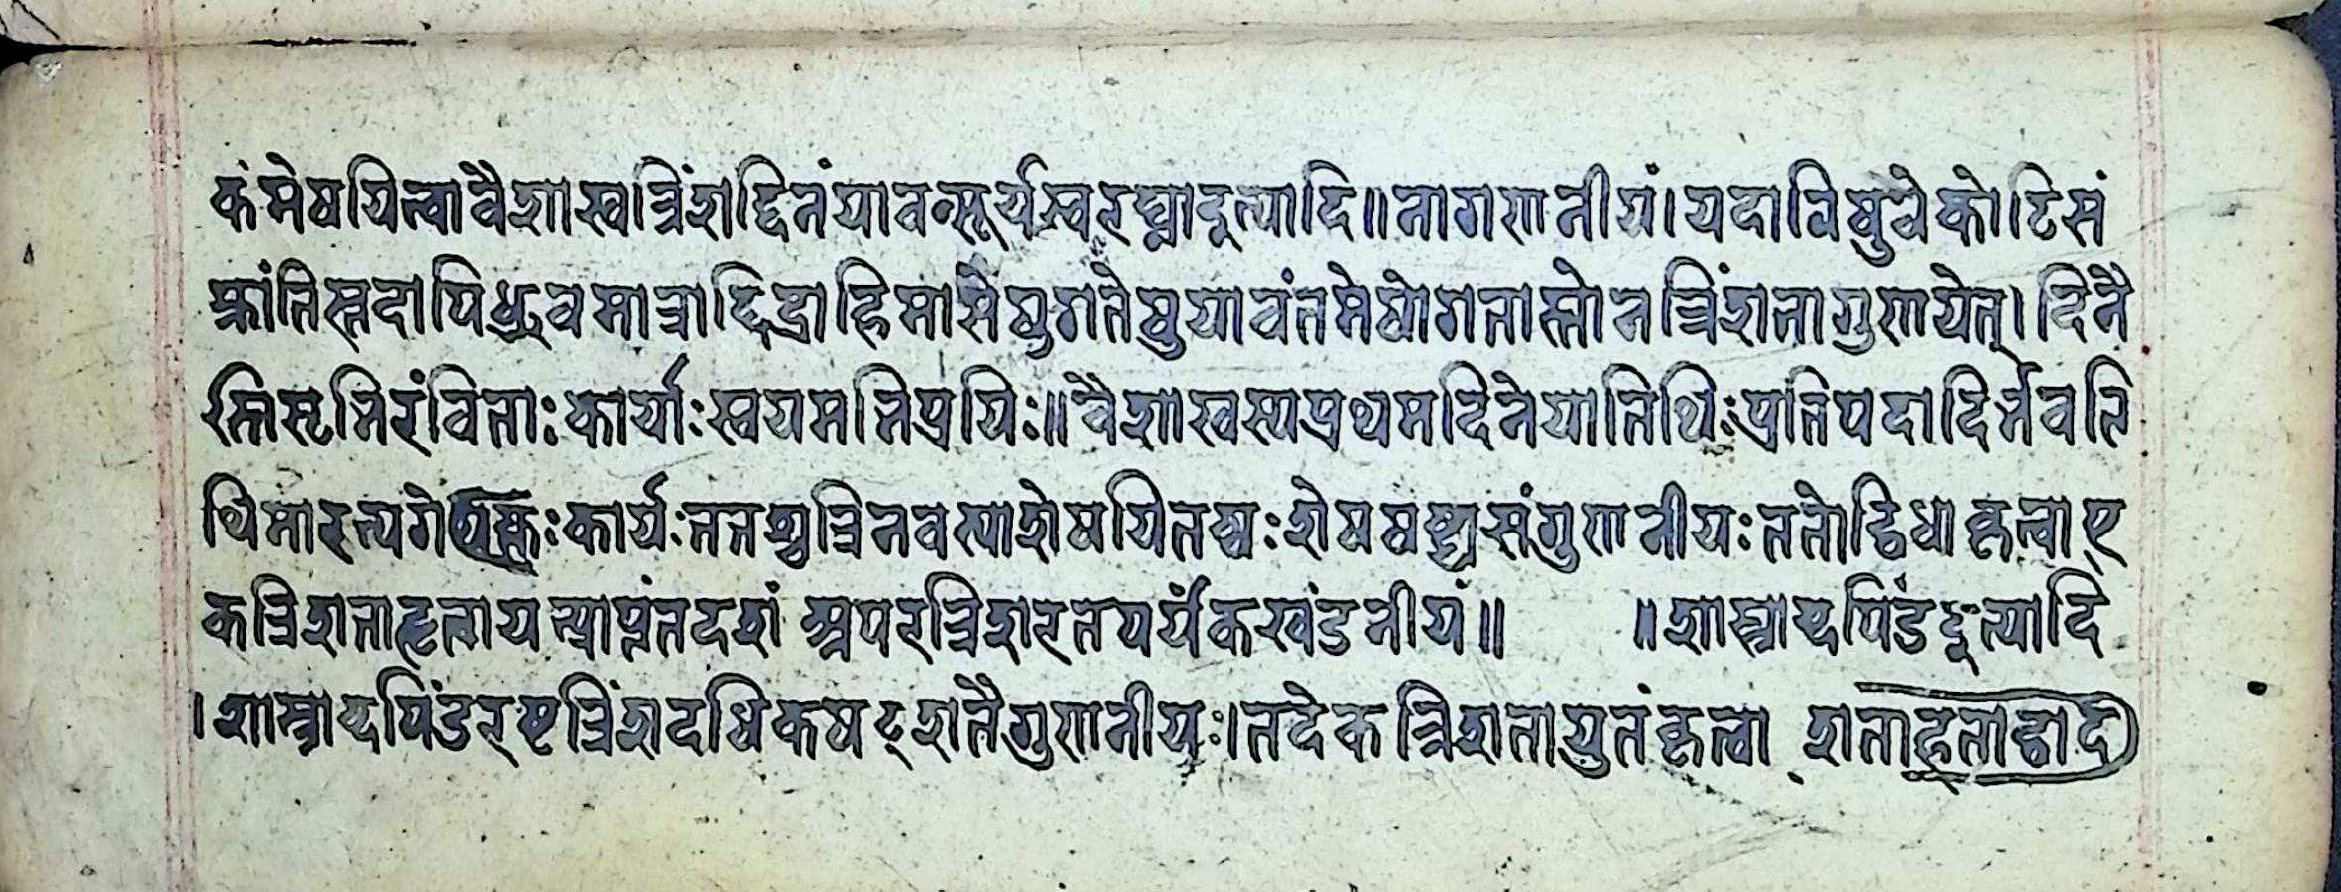 कंमेषयित्वावैशाखत्रिंशद्दिनंयावत्सूर्यस्वरघ्नादूत्यादि॥नागगणनीयं।यदाविषुवेकोटिसं
क्रांतिस्तदापिध्रुवमात्राद्दिद्राह्निमासेषुगतेषुयावंतमेषोगतास्तोनत्रिंशतागुणयेत्।दिनै
स्तिसृभिरंविताःकार्याःस्वयमतिप्रयिः॥वैशाखस्यप्रथमदिनेयातिथिःप्रतिपदादिर्भवति
थिमारत्यगे कार्यःततश्चत्रिनवत्याशेषयितव्यःशेषषष्ट्यासंगुणनीयःततोद्विधाकृत्वाए
कत्रिशताहृत्वायत्प्राप्तंतदशं अपरत्रिशरतपर्यंकखंडनीयं॥ ॥शास्त्राब्दपिंडंदूत्यादि
।शास्त्राब्दपिंडरष्टत्रिंशदधिकषट्शतैगुणनीयः।तदेकत्रिशतायुतंकृत्वा शता